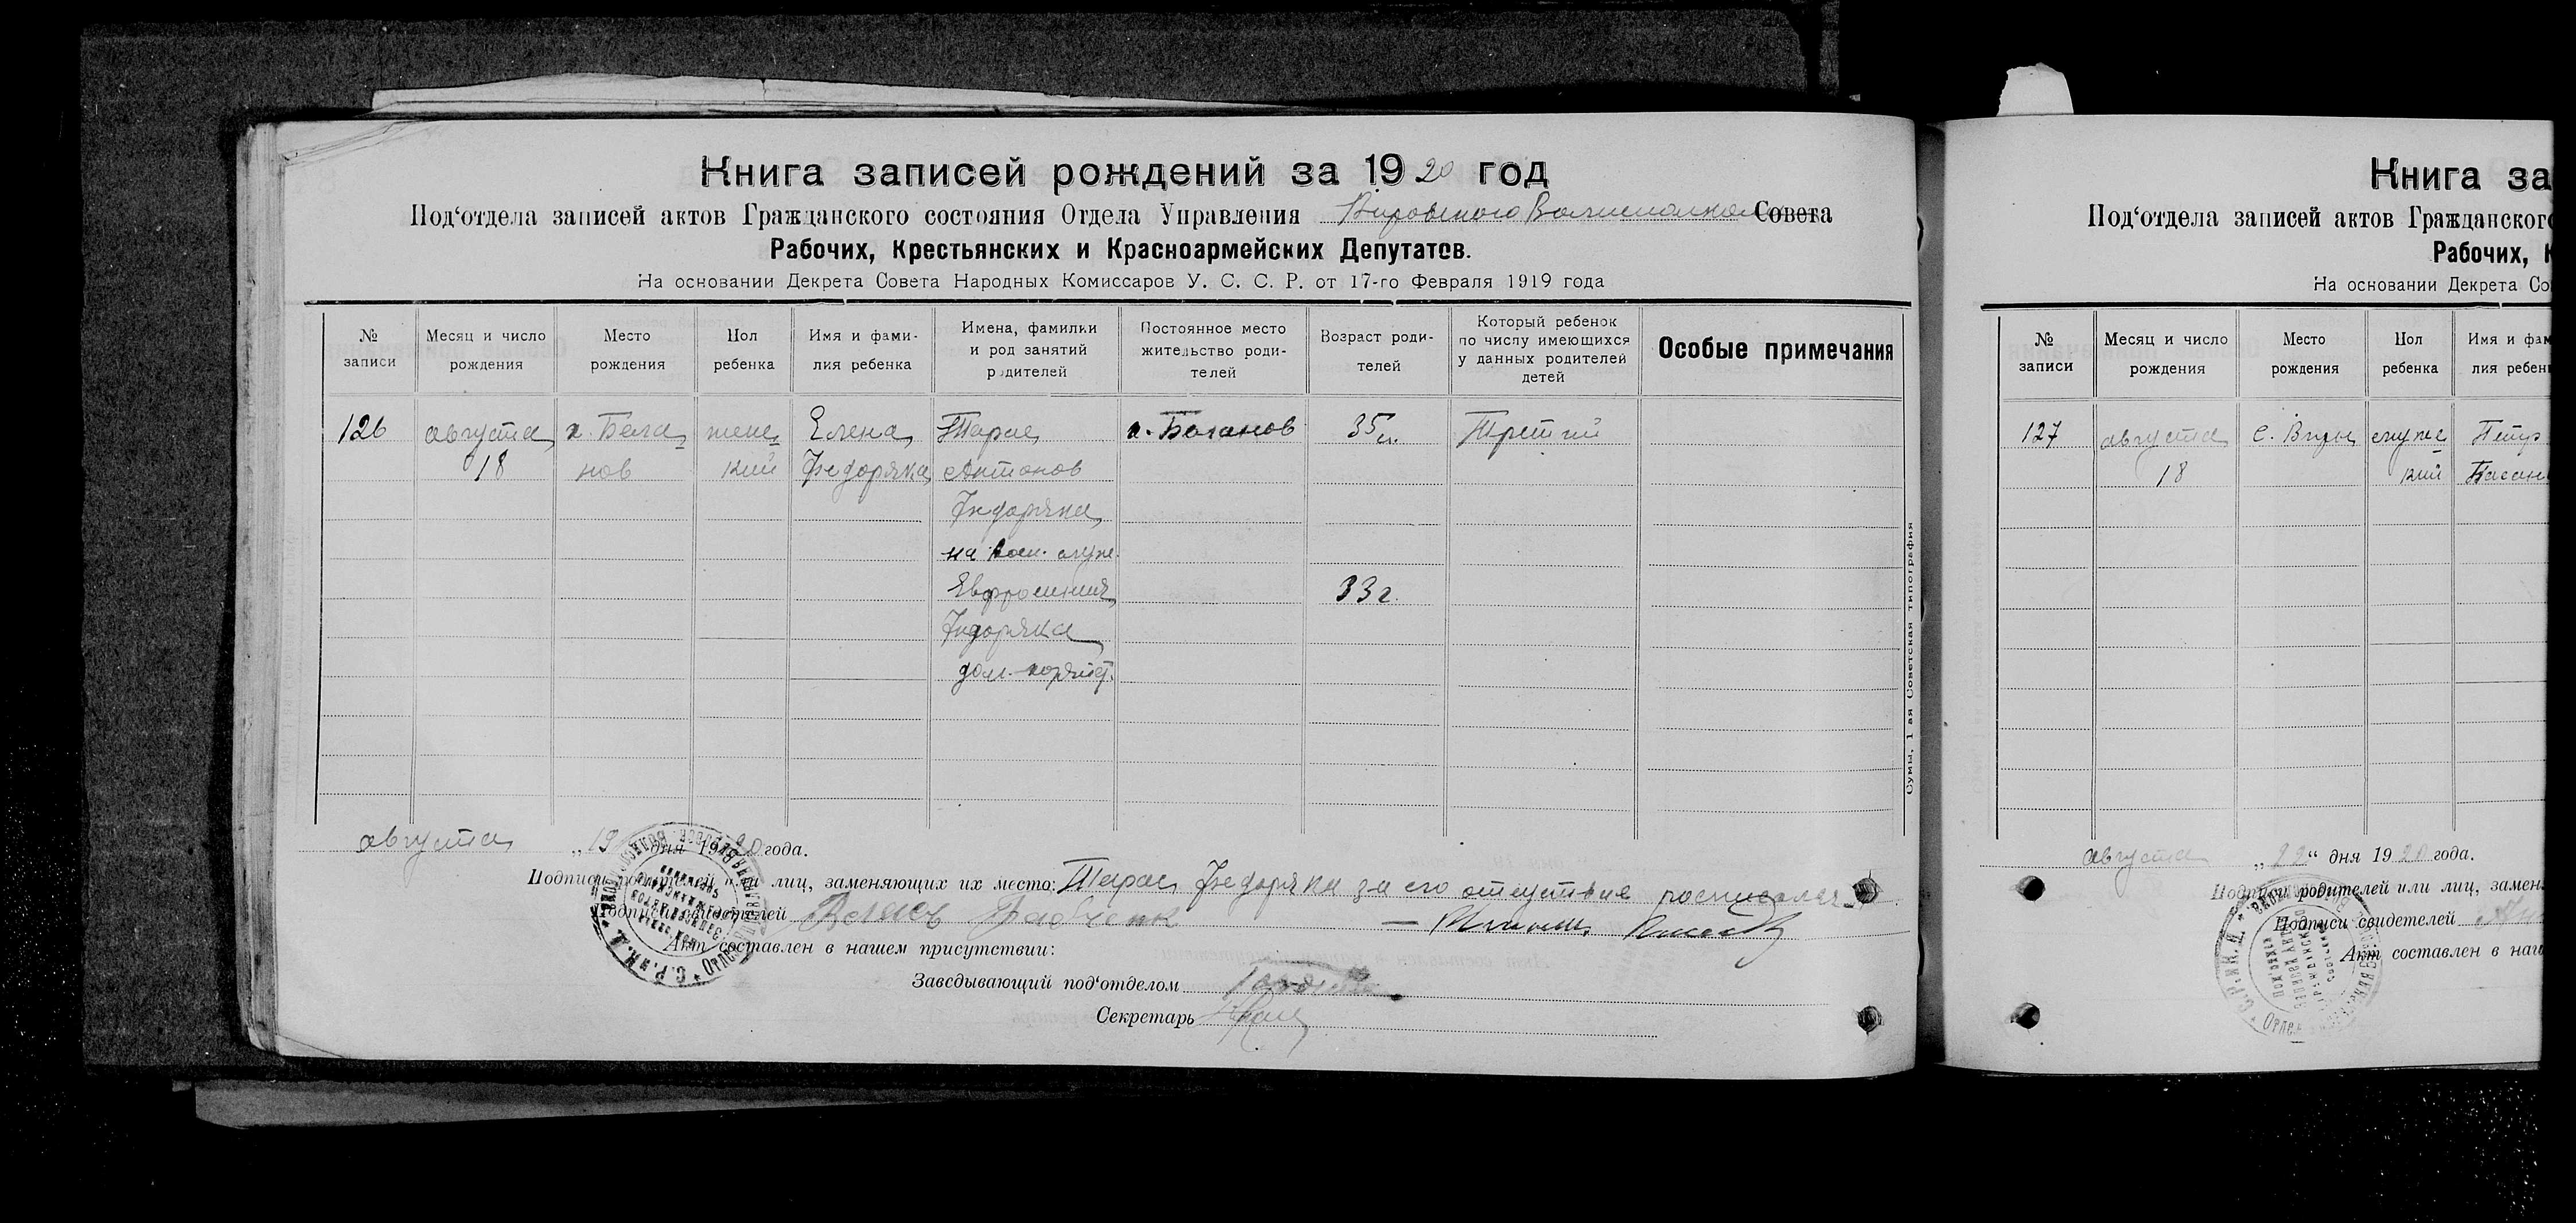 Книга записей рождений за 1920 год
Под‘отдела записей актов Гражданского состояния Отдела Управления Вировского Волисполкома Совета
Рабочих, Крестьянских и Красноармейских Депутатов.
На основании Декрета Совета Народных Комиссаров У. С. С. Р. от 17-го Февраля 1919 года
№ записи
Месяц и число рождения
Место рождения
Пол ребенка
Имя и фами- лия ребенка
Имена, фамилии и род занятий родителей
Постоянное место жительство роди- телей
Возраст роди- телей
Который ребенок по числу имеющихся у данных родителей детей
Особые примечания
126 августа х. Бала- жене- Елена Тарас х. Баланов 35 л. Третий
18 нов кий Федоряка Антонов
Федоряка
на воен. служ.
Евфросиния 33 г.
Федоряка
дом.
августа „19 дня 1920 года.
Подписи родителей или лиц, заменяющих их место: Тарас Федоряка за его отсуствие росписался
Подписи свидетелей
Акт составлен в нашем присутствии:
Заведывающий под‘отделом
Секретарь
Сумы, 1 ая Советская типография
Книга за
Под‘отдела записей актов Гражданского
Рабочих, К
На основании Декрета Со
№ записи
Месяц и число рождения
Место рождения
Пол ребенка
Имя и фам лия ребен
127 августа с. Виры муже- Петр
18 кий
августа „22“ дня 1920 года.
Подписи родителей или лиц, замен
Подписи свидетелей
Акт составлен в наш